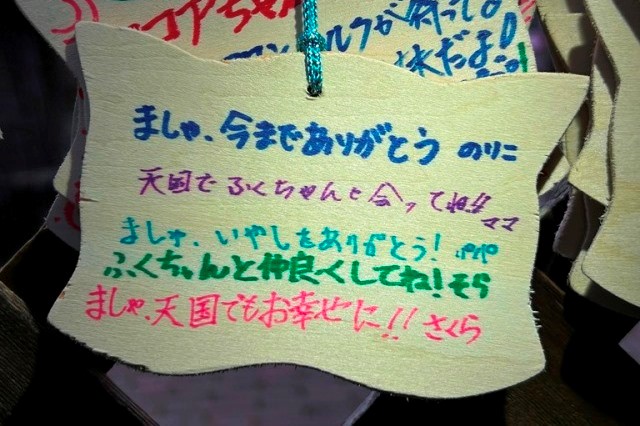 ココアちゃん
ましゃ、今までありがとう のりこ
天国でふくちゃんと会ってね!! ママ
ましゃ、いやしをありがとう! パパ
ふくちゃんと仲良くしてね! そら
ましゃ、天国でもお幸せに!! さくら